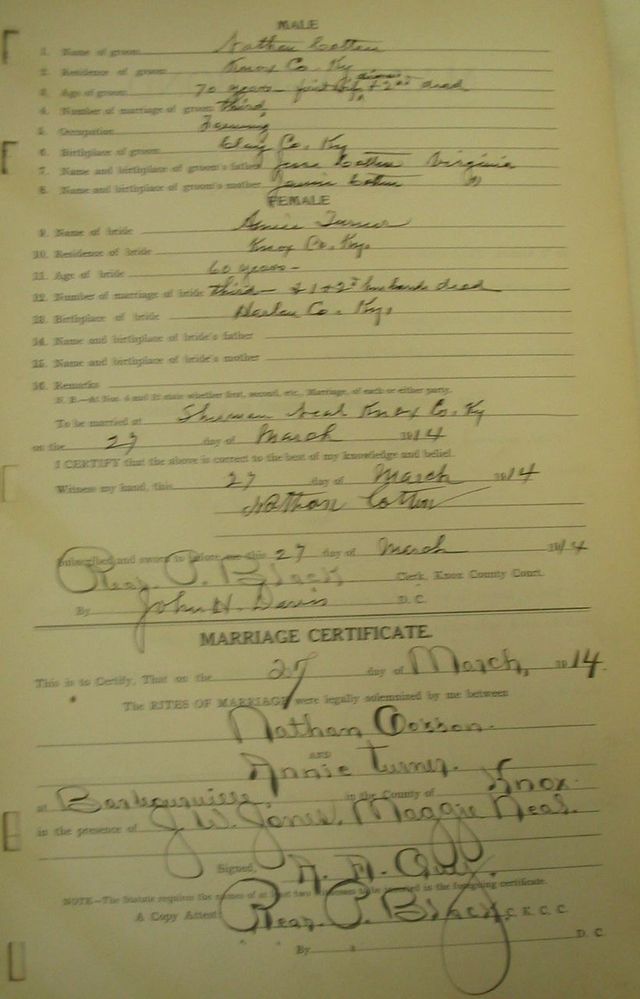 MALE
1. Name of groom Nathan Cotton
2. Residence of groom Knox Co. Ky
3. Age of groom 70 years - first + 2nd dead
4. Number of marriage of groom third
5. Occupation Farming
6. Birthplace of groom Clay Co. Ky
7. Name and birthplace of groom's father Jesse Cotton Virginia
8. Name and birthplace of groom's mother Cotton
FEMALE
9. Name of bride Annie Turner
10. Residence of bride Knox Co. Ky.
11. Age of bride 60 years -
12. Number of marriage of bride third - 1 + 2nd husband dead
13. Birthplace of bride Harlan Co. Ky.
14. Name and birthplace of bride's father
15. Name and birthplace of bride's mother
16. Remarks
N. B.—At Nos. 4 and 12 state whether first, second, etc., Marriage, of each or either party.
To be married at Sherman Neal Knox Co. Ky
on the 27 day of March 1914
I CERTIFY that the above is correct to the best of my knowledge and belief.
Witness my hand, this 27 day of March 1914
Nathan Cotton
Subscribed and sworn to before me this 27 day of March 1914
Read P. Black Clerk, Knox County Court.
By John H. Davis D. C.
MARRIAGE CERTIFICATE.
This is to Certify, That on the 27 day of March, 1914.
The RITES OF MARRIAGE were legally solemnized by me between
Nathan
AND
Annie Turner.
at Barbourville, in the County of Knox.
in the presence of J. W. Jones. Maggie Neal.
Signed,
NOTE—The Statute requires the names of at least two witnesses to be inserted in the foregoing certificate.
A Copy Attest: Read P. Black, C. K. C. C.
By D. C.